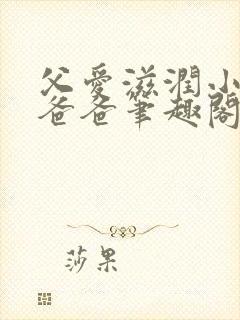 父愛滋潤小
爸爸筆趣閣
莎果